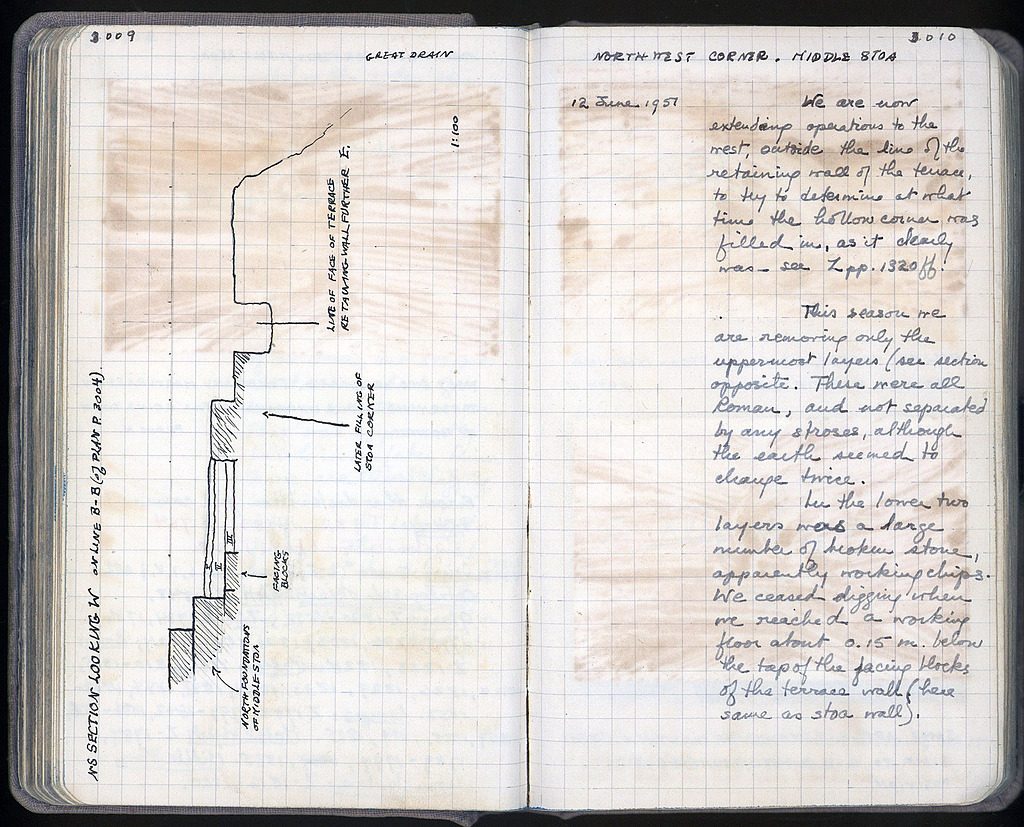 3009
GREAT DRAIN
NS SECTION LOOKING W ON LINE B-B (cf PLAN P. 3004)
1:100
LINE OF FACE OF TERRACE
RETAINING WALL FURTHER E.
LATER FILLING OF
STOA CORNER
I
II
III
FACING
BLOCKS
NORTH FOUNDATIONS
OF MIDDLE STOA
3010
NORTHWEST CORNER. MIDDLE STOA
12 June 1951 We are now
extending operations to the
west, outside the line of the
retaining wall of the terrace,
to try to determine at what
time the hollow corner was
filled in, as it clearly
was - see Z pp. 1320ff.
This season we
are removing only the
uppermost layers (see section
opposite. These were all
Roman, and not separated
by any stroses, although
the earth seemed to
change twice.
In the lower two
layers was a large
number of broken stone,
apparently working chips.
We ceased digging when
we reached a working
floor about 0.15 m. below
the top of the facing blocks
of the terrace wall (here
same as stoa wall).